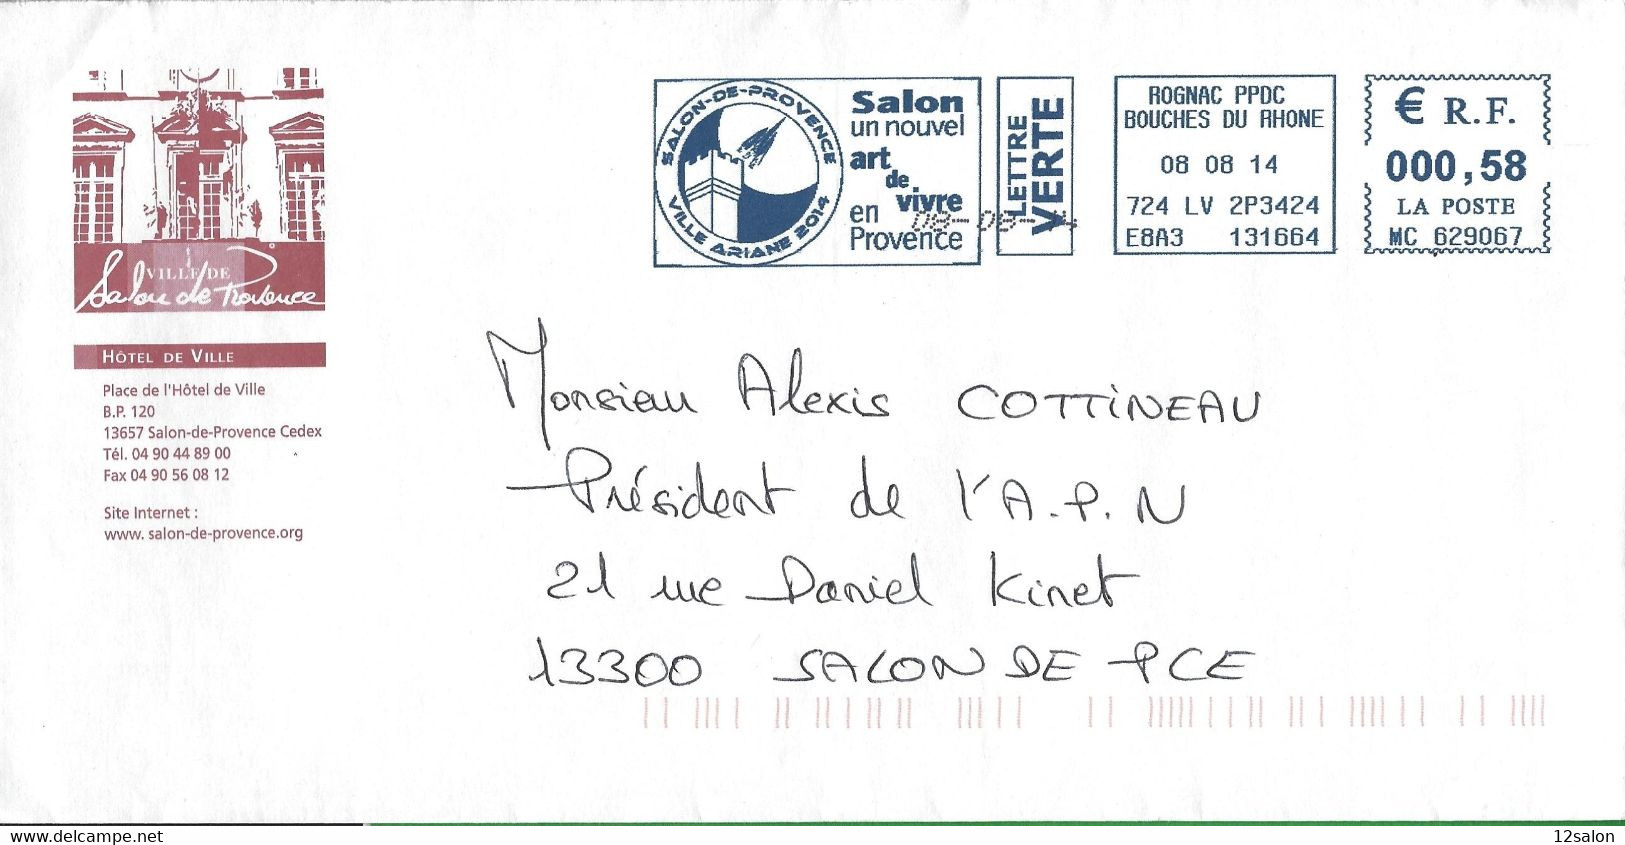 VILLE DE
Salon de Provence
HÔTEL DE VILLE
Place de l'Hôtel de Ville
B.P. 120
13657 Salon-de-Provence Cedex
Tél. 04 90 44 89 00
Fax 04 90 56 08 12
Site Internet :
www. salon-de-provence.org
SALON-DE-PROVENCE
VILLE ARIANE 2014
Salon
un nouvel
art
de
vivre
en
Provence
08-08-14
LETTRE
VERTE
ROGNAC PPDC
BOUCHES DU RHONE
08 08 14
724 LV 2P3424
E8A3 131664
€ R.F.
000,58
LA POSTE
MC 629067
Monsieur Alexis COTTINEAU
Président de l'A.P.N
21 rue Daniel Kinet
13300 SALON DE PCE
www.delcampe.net
12salon